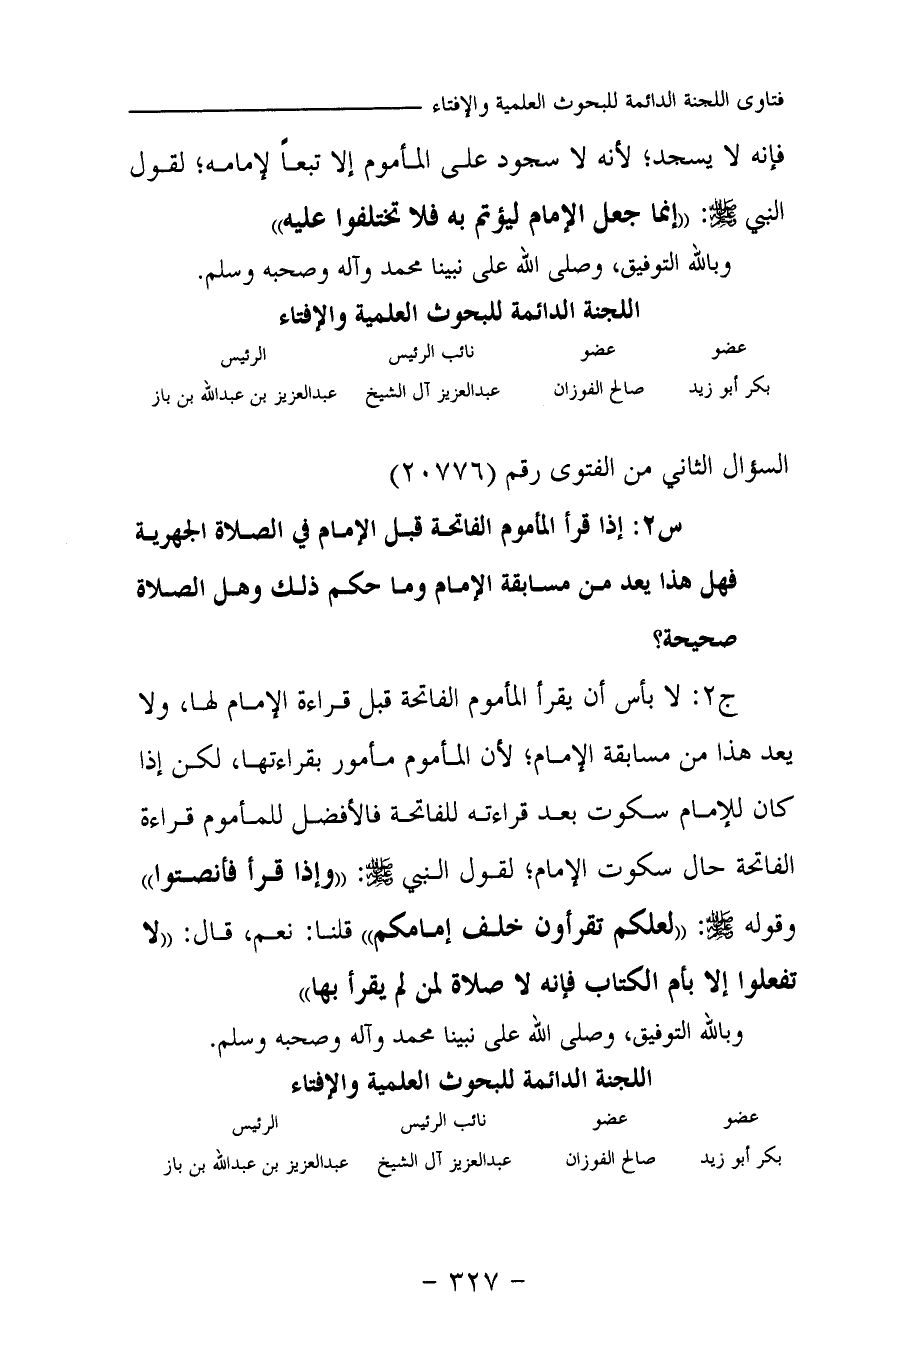 فتاوى اللجنة الدائمة للبحوث العلمية والإفتاء
فإنه لا يسجد؛ لأنه لا سجود على المأموم إلا تبعاً لإمامه؛ لقول
النبي ﷺ: ((إنما جعل الإمام ليؤتم به فلا تختلفوا عليه))
وبالله التوفيق، وصلى الله على نبينا محمد وآله وصحبه وسلم.
اللجنة الدائمة للبحوث العلمية والإفتاء
عضو عضو نائب الرئيس الرئيس
بكر أبو زيد صالح الفوزان عبدالعزيز آل الشيخ عبدالعزيز بن عبدالله بن باز
السؤال الثاني من الفتوى رقم (٢٠٧٧٦)
س٢: إذا قرأ المأموم الفاتحة قبل الإمام في الصلاة الجهرية
فهل هذا يعد من مسابقة الإمام وما حكم ذلك وهل الصلاة
صحيحة؟
ج٢: لا بأس أن يقرأ المأموم الفاتحة قبل قراءة الإمام لها، ولا
يعد هذا من مسابقة الإمام؛ لأن المأموم مأمور بقراءتها، لكن إذا
كان للإمام سكوت بعد قراءته للفاتحة فالأفضل للمأموم قراءة
الفاتحة حال سكوت الإمام؛ لقول النبي ﷺ: ((وإذا قرأ فأنصتوا))
وقوله ﷺ: ((لعلكم تقرأون خلف إمامكم)) قلنا: نعم، قال: ((لا
تفعلوا إلا بأم الكتاب فإنه لا صلاة لمن لم يقرأ بها))
وبالله التوفيق، وصلى الله على نبينا محمد وآله وصحبه وسلم.
اللجنة الدائمة للبحوث العلمية والإفتاء
عضو عضو نائب الرئيس الرئيس
بكر أبو زيد صالح الفوزان عبدالعزيز آل الشيخ عبدالعزيز بن عبدالله بن باز
- ٣٢٧ -